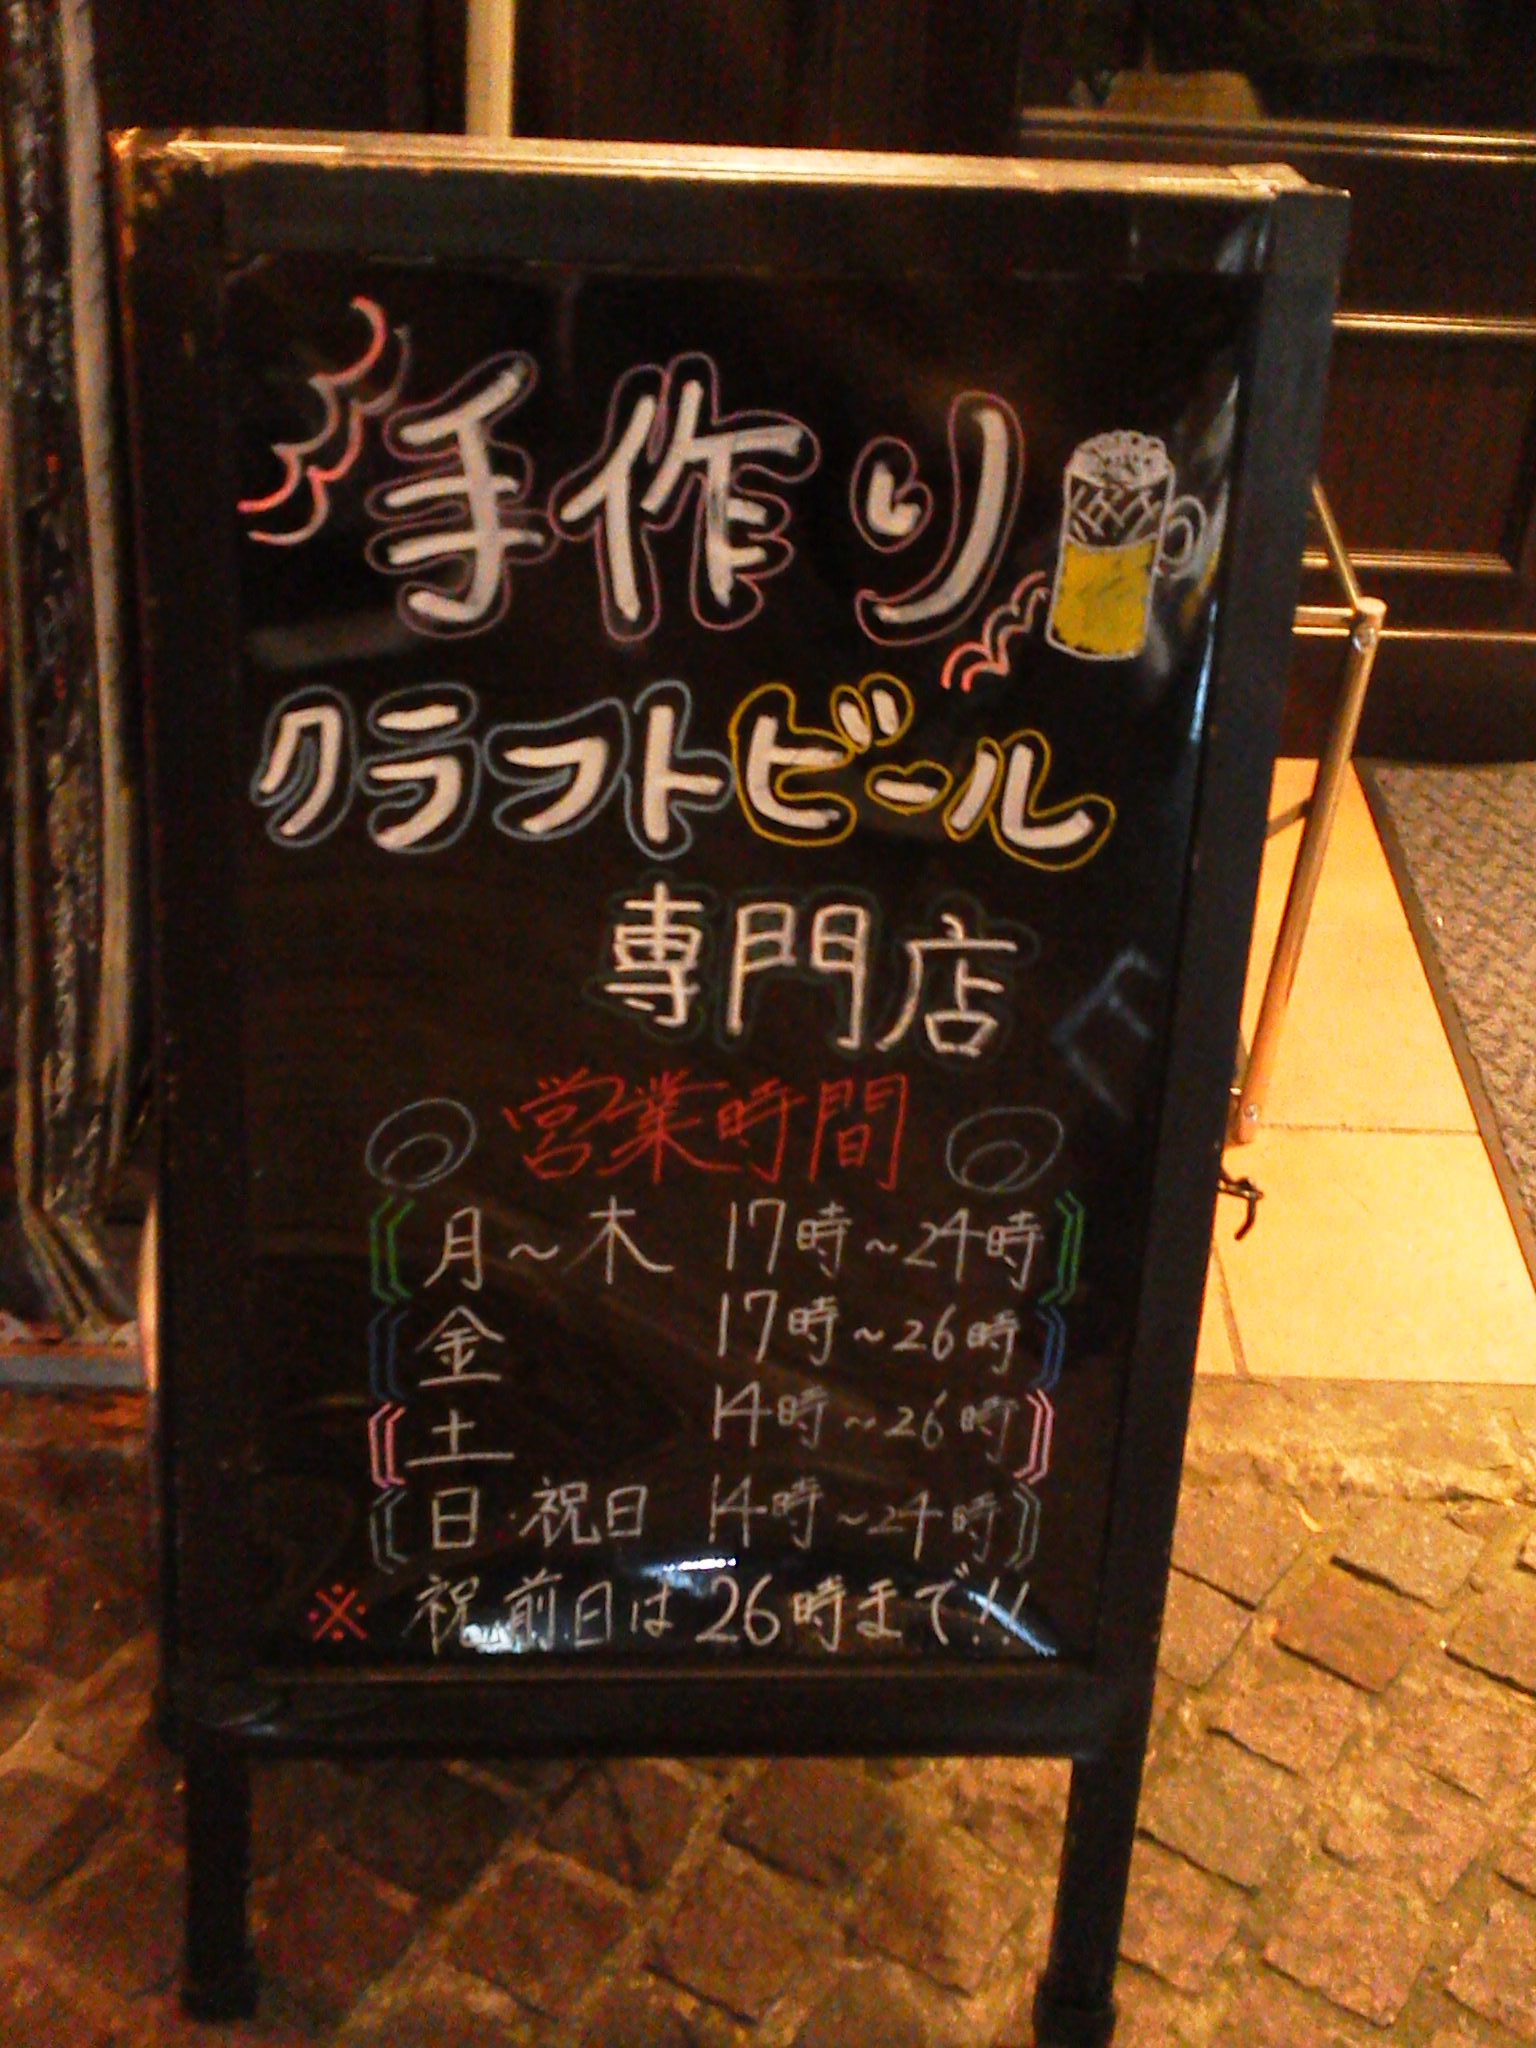 手作り
クラフトビール
専門店
営業時間
月～木 17時～24時
金 17時～26時
土 14時～26時
日・祝日 14時～24時
※ 祝前日は26時まで!!